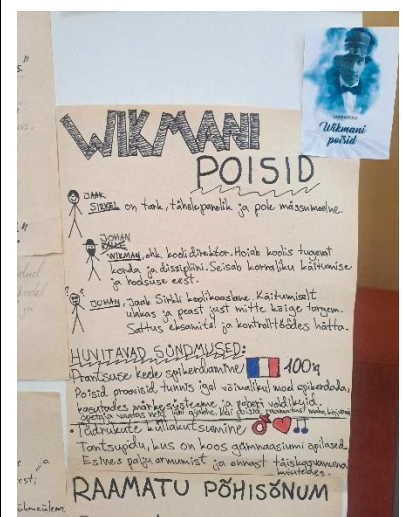 Wikmani
poisid
WIKMANI
POISID
JAAK
SIRKEL on tark, tähelepanelik ja pole mässumeelne.
JOHAN
WIKMAN, ehk kooli direktor. Hoiab koolis tugevat
korda ja distsipliini. Seisab korraliku käitumise
ja haduse eest.
JUHAN, Jaak Sirkli koolikaaslane. Käitumiselt
ja peast just mitte kõige targem.
Sattus eksamitel ja kontrolltöödes hätta.
HUVITAVAD SÜNDMUSED:
Prantsuse keele spikerdamine 100%
Poisid proovisid tunnis igal võimalikul moel spikerdada,
kasutades märkesüsteeme ja paberi voldikuid.
õpetaja vaatas neid läbi ajalehe, või poisid raamatust maha
Tüdrukute küllakutsumine
Tantsupidu, kus on koos gümnaasiumi õpilased.
Esines palju armumist ja ennast täiskasvanuna
RAAMATU PÕHISÕNUM